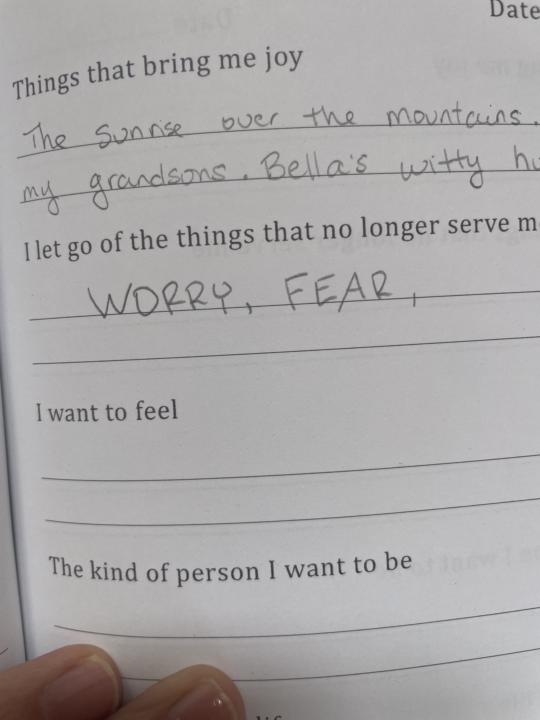 Date
Things that bring me joy
The sunrise over the mountains.
my grandsons. Bella's witty
I let go of the things that no longer serve
WORRY, FEAR,
I want to feel
The kind of person I want to be